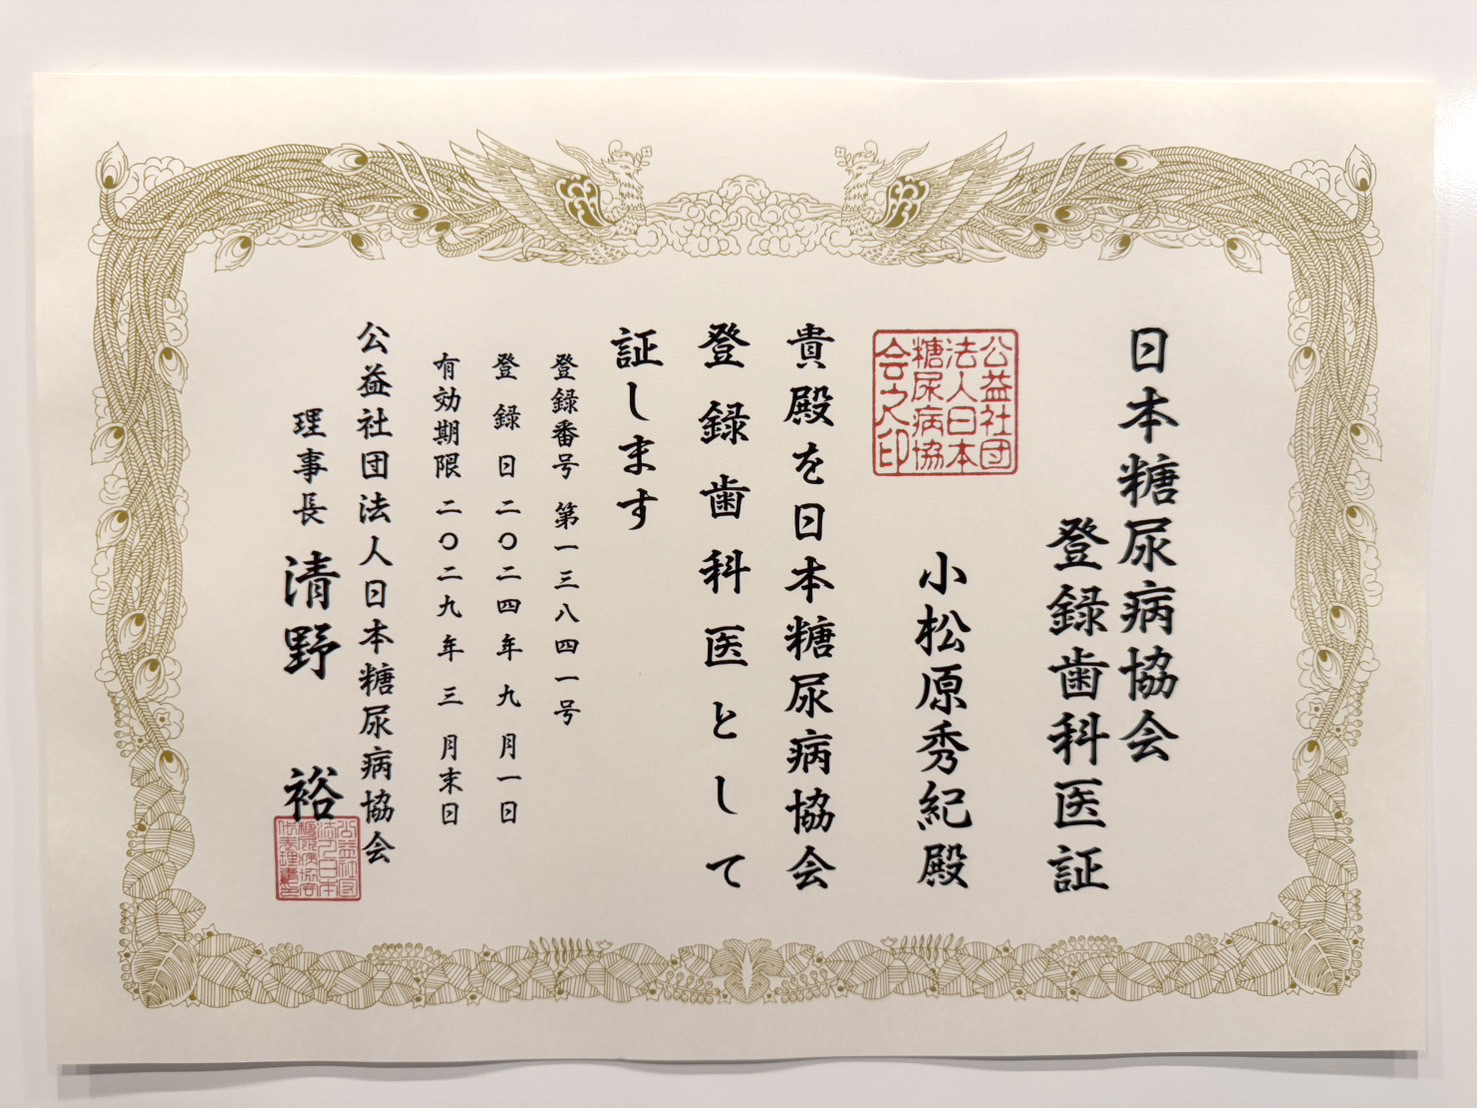 日本糖尿病協会
登録歯科医証
小松原秀紀殿
公益社団
法人日本
糖尿病協
会之印
貴殿を日本糖尿病協会
登録歯科医として
証します
登録番号 第一三八四一号
登録日 二〇二四年九月一日
有効期限 二〇二九年三月末日
公益社団法人日本糖尿病協会
理事長 清野 裕
公益社団
法人日本
糖尿病協会
代表理事印